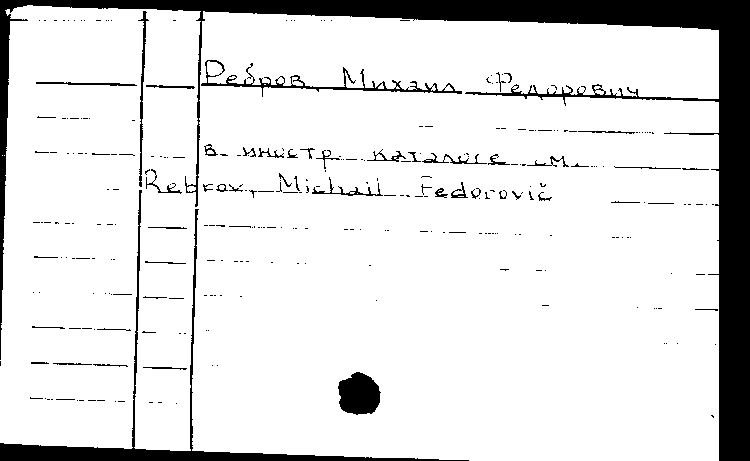 Ребров, Михаил Федорович
в иностр. каталоге см.
Rebrov, Michail Fedorovič